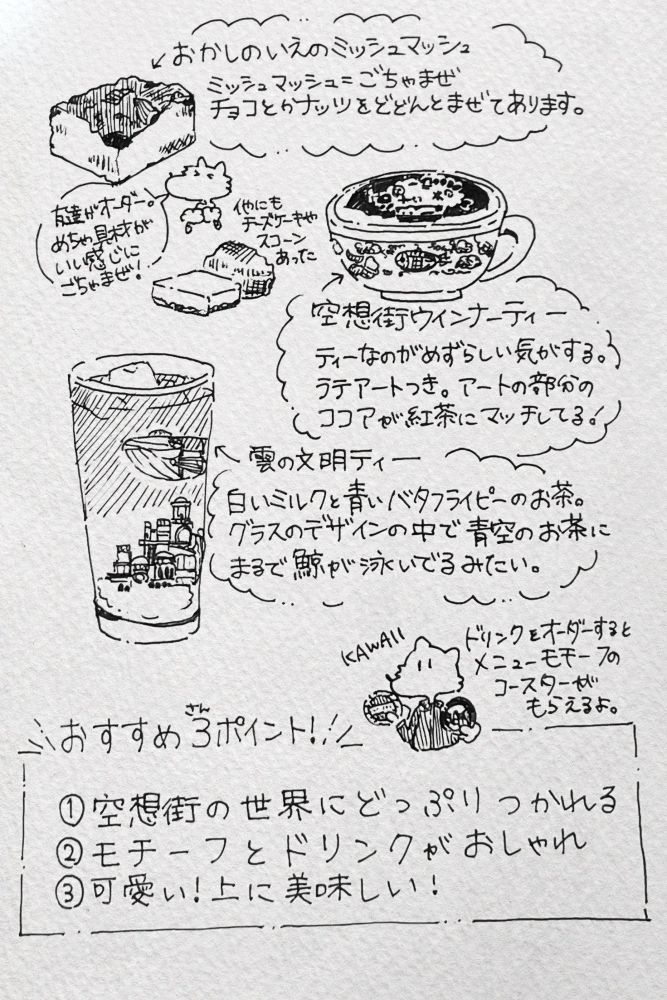 おかしのいえのミッシュマッシュ
ミッシュマッシュ=ごちゃまぜ
チョコとかナッツをどどんとまぜてあります。
友達がオーダー。
めちゃ具材が
いい感じに
ごちゃまぜ!
イヤにも
チーズケーキや
スコーン
あった
空想街ウインナーティー
ティーなのがめずらしい気がする。
ラテアートつき。アートの部分の
ココアが紅茶にマッチしてる!
雲の文明ティー
白いミルクと青いバタフライピーのお茶。
グラスのデザインの中で青空のお茶に
まるで鯨が泳いでるみたい。
KAWAII
ドリンクをオーダーすると
メニューモチーフの
コースターが
もらえるよ。
おすすめ3さんポイント!
①空想街の世界にどっぷりつかれる
②モチーフとドリンクがおしゃれ
③可愛い!上に美味しい!